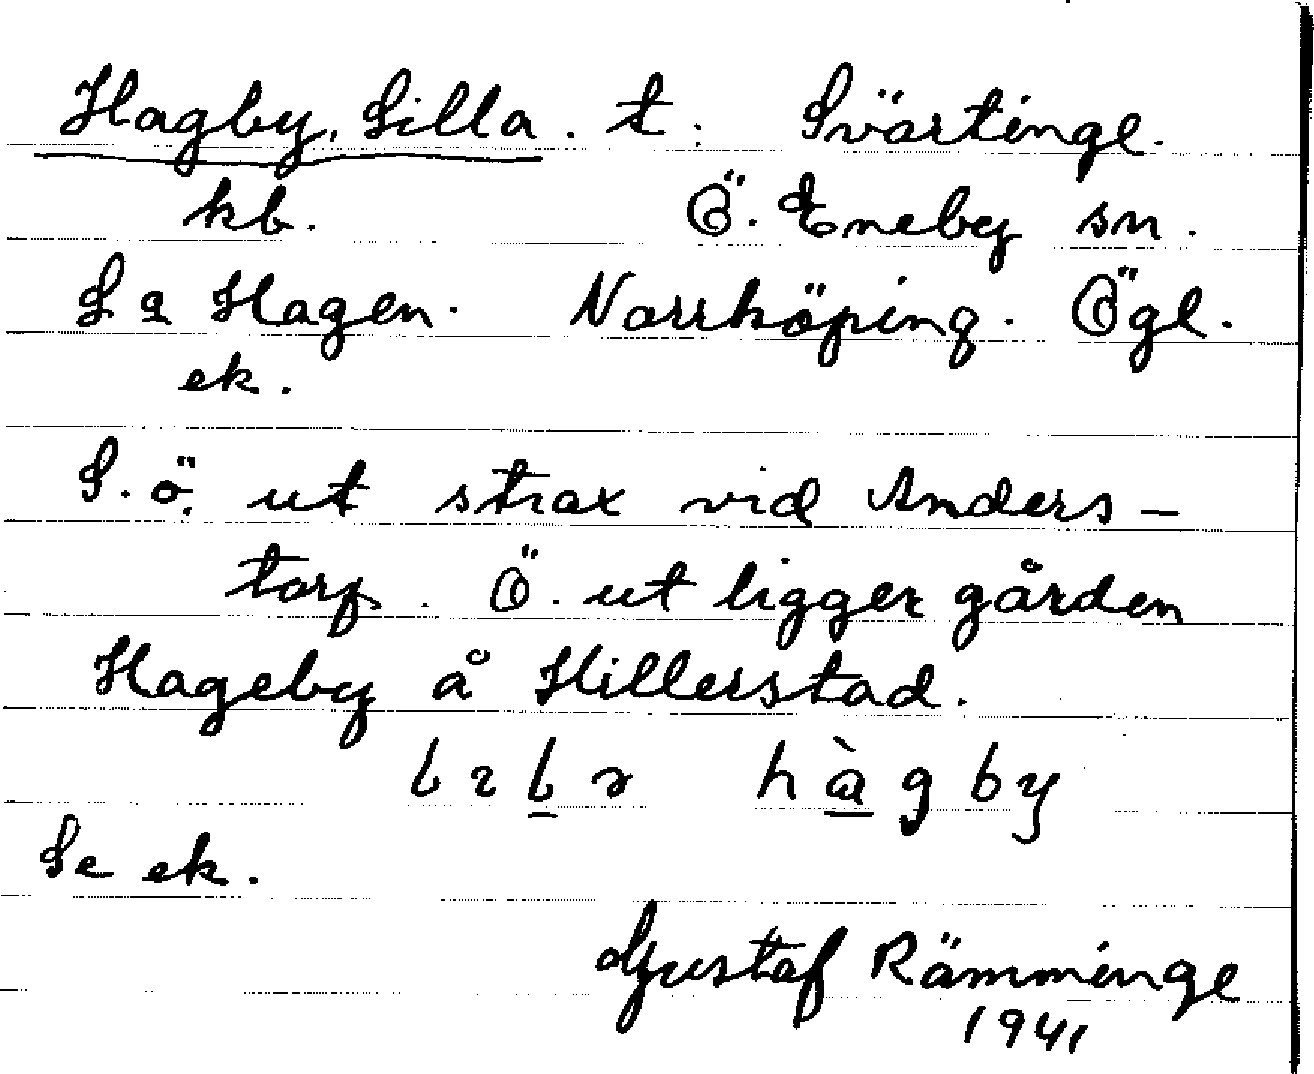 Hagby, Lilla. t. Svärtinge.
kb. Ö. Eneby sn.
La Hagen. Norrköping. Ögl.
ek.
S. ö. ut strax vid Anders-
torp. Ö. ut ligger gården
Hageby å Hillerstad.
hàgby
Se ek.
Gustaf Rämminge
1941